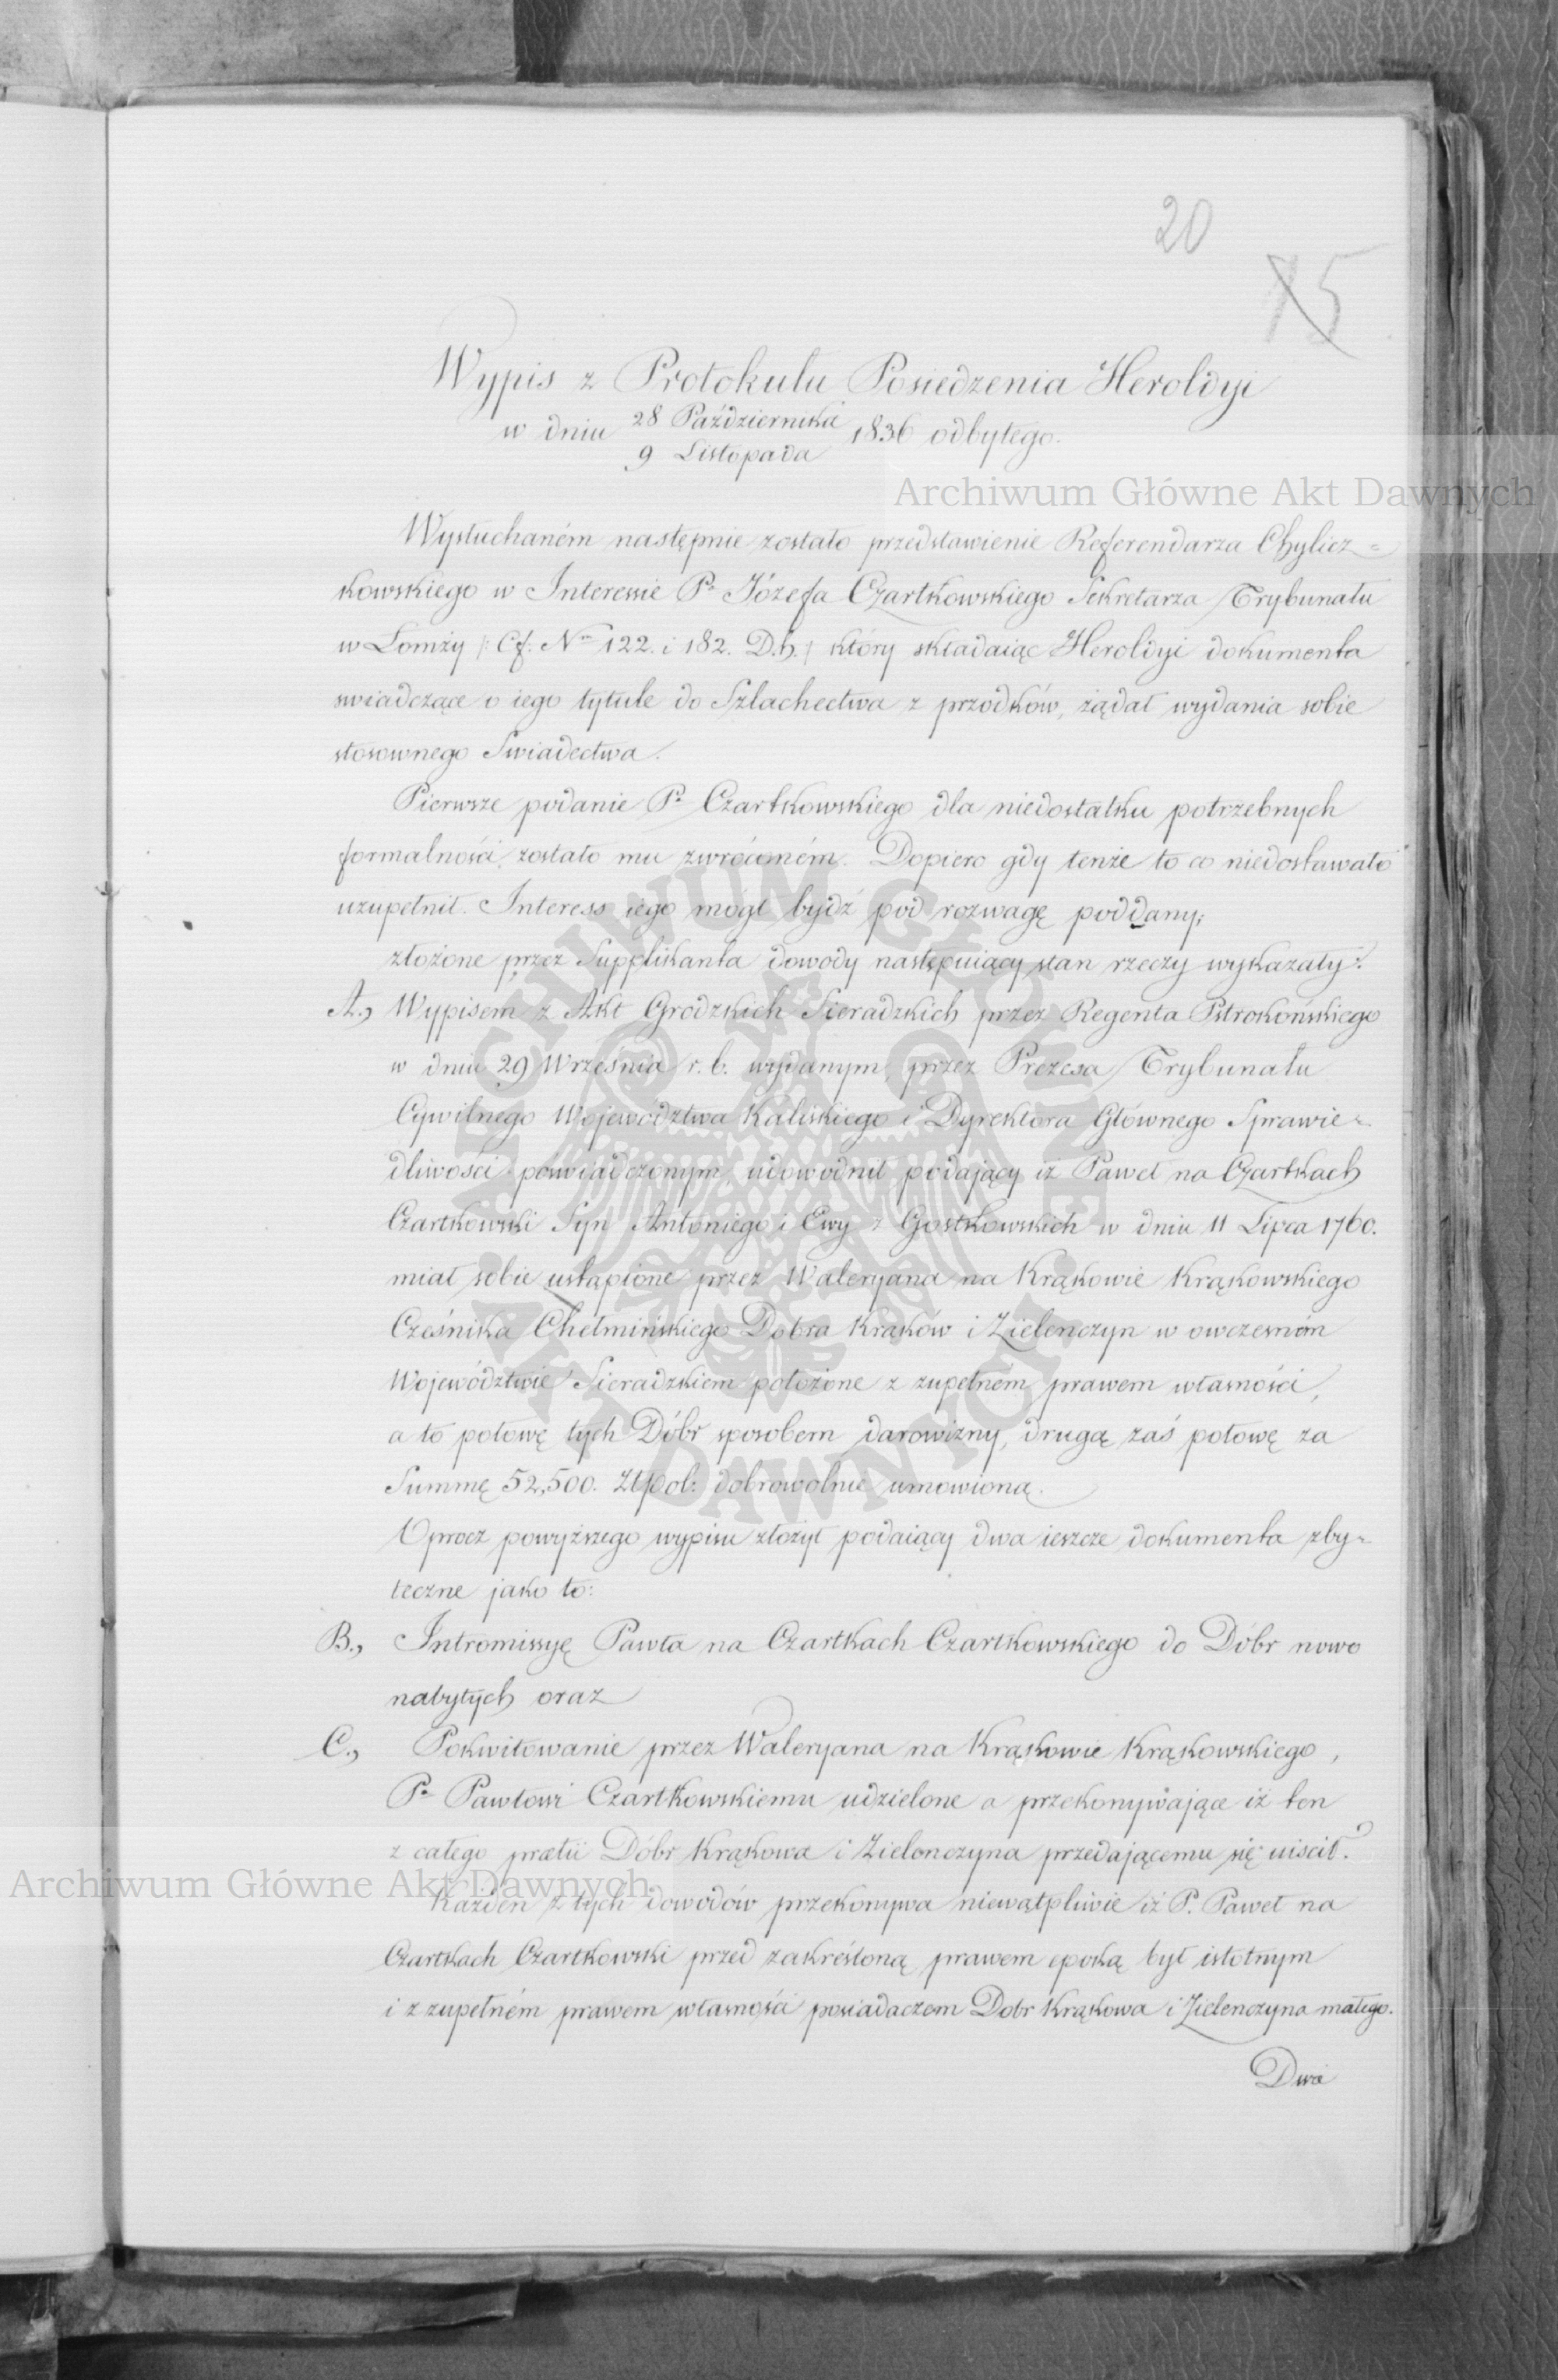 20
15
Wypis z Protokułu Posiedzenia Heroldyi
w dniu 28 Października 1836 odbytego.
9 Listopada
Archiwum Główne Akt Dawnych
Wysłuchaném następnie zostało przedstawienie Referendarza Chylicz=
kowskiego w Interessie P. Józefa Czartkowskiego Sekretarza Trybunału
w Lomży /: Cf. Nr 122. i 182. D.h. / który składaiąc Heroldyi dokumenta
swiadczące o iego tytule do Szlachectwa z przodków, żądał wydania sobie
stosownego Swiadectwa.
Pierwsze podanie P. Czartkowskiego dla niedostatku potrzebnych
formalności, zostało mu zwróconém. Dopiero gdy tenże to co niedostawało
uzupełnił. Interess iego mógł bydź pod rozwagę poddany;
złożone przez Supplikanta dowody następuiący stan rzeczy wykazały:
A., Wypisem z Akt Grodzkich Sieradzkich przez Regenta Pstrokońskiego
w dniu 29 Września r. b. wydanym, przez Prezesa Trybunału
Cywilnego Województwa Kaliskiego i Dyrektora Głównego Sprawie=
dliwości poswiadczonym, udowodnił podający iż Paweł na Czartkach
Czartkowski Syn Antoniego i Ewy z Gostkowskich w dniu 11 Lipca 1760.
miał sobie ustąpione przez Waleryana na Krąkowie Krąkowskiego
Cześnika Chełmińskiego Dobra Krąków i Zielenczyn w owczesném
Województwie Sieradzkiem położone z zupełném prawem własności,
a to połowę tych Dóbr sposobem darowizny, drugą zaś połowę za
Summę 52,500. Złpol: dobrowolnie umowioną.
Oprocz powyższego wypisu złożył podaiący dwa ieszcze dokumenta zby=
teczne jako to:
B., Intromissyę Pawła na Czartkach Czartkowskiego do Dóbr nowo
nabytych oraz
C., Pokwitowanie przez Waleryana na Krąkowie Krąkowskiego,
P. Pawłowi Czartkowskiemu udzielone a przekonywające iż ten
z całego prætii Dóbr Krąkowa i Zielonczyna przedającemu się uiścił.
Archiwum Główne Akt Dawnych
Każden z tych dowodów przekonywa niewątpliwie iż P. Paweł na
Czartkach Czartkowski przed zakreśloną prawem epoką był istotnym
i z zupełném prawem własności posiadaczem Dobr Krąkowa i Zielenczyna małego.
Dwa
ARCHIWUM GŁÓWNE AKT DAWNYCH